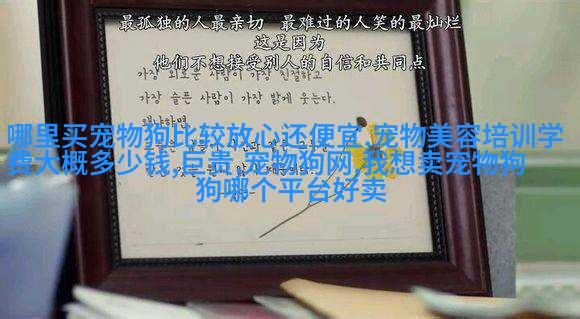 最孤独的人最亲切　最难过的人笑的最灿烂
这是因为
他们不想接受别人的自信和共同点
가장 외로운 사람이 가장 친절하고
가장 슬픈 사람이 가장 밝게 웃는다.
왜냐하면
哪里买宠物狗比较放心还便宜,宠物美容培训学
费大概多少钱,巨贵,宠物狗网,我想卖宠物狗
狗哪个平台好卖